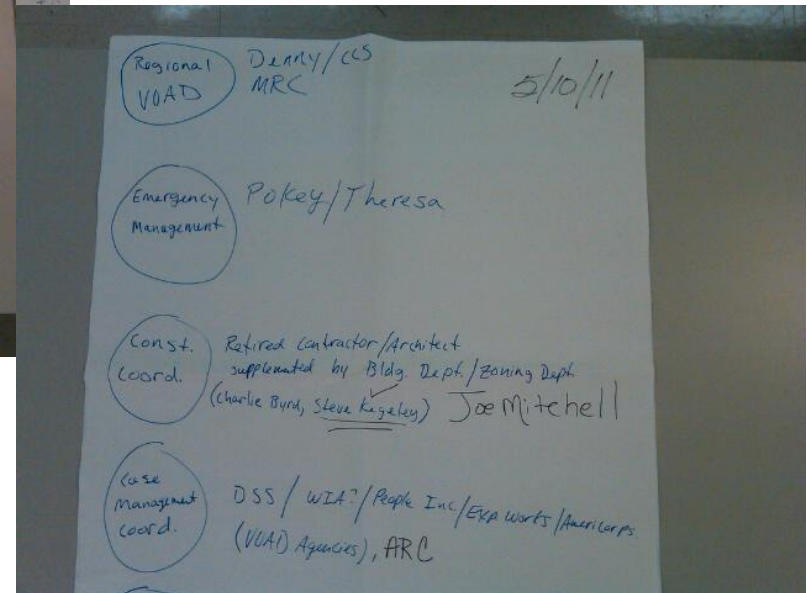 Regional
VOAD
Denny/CCS
MRC
5/10/11
Emergency
Management
Pokey/Theresa
Const.
Coord.
Retired Contractor/Architect
supplemented by Bldg. Dept./Zoning Dept.
(Charlie Byrd, Steve Kegeley) Joe Mitchell
Case
Management
Coord.
DSS/ WIA?/People Inc/Exp Works/Americorps
(VOAD Agencies), ARC